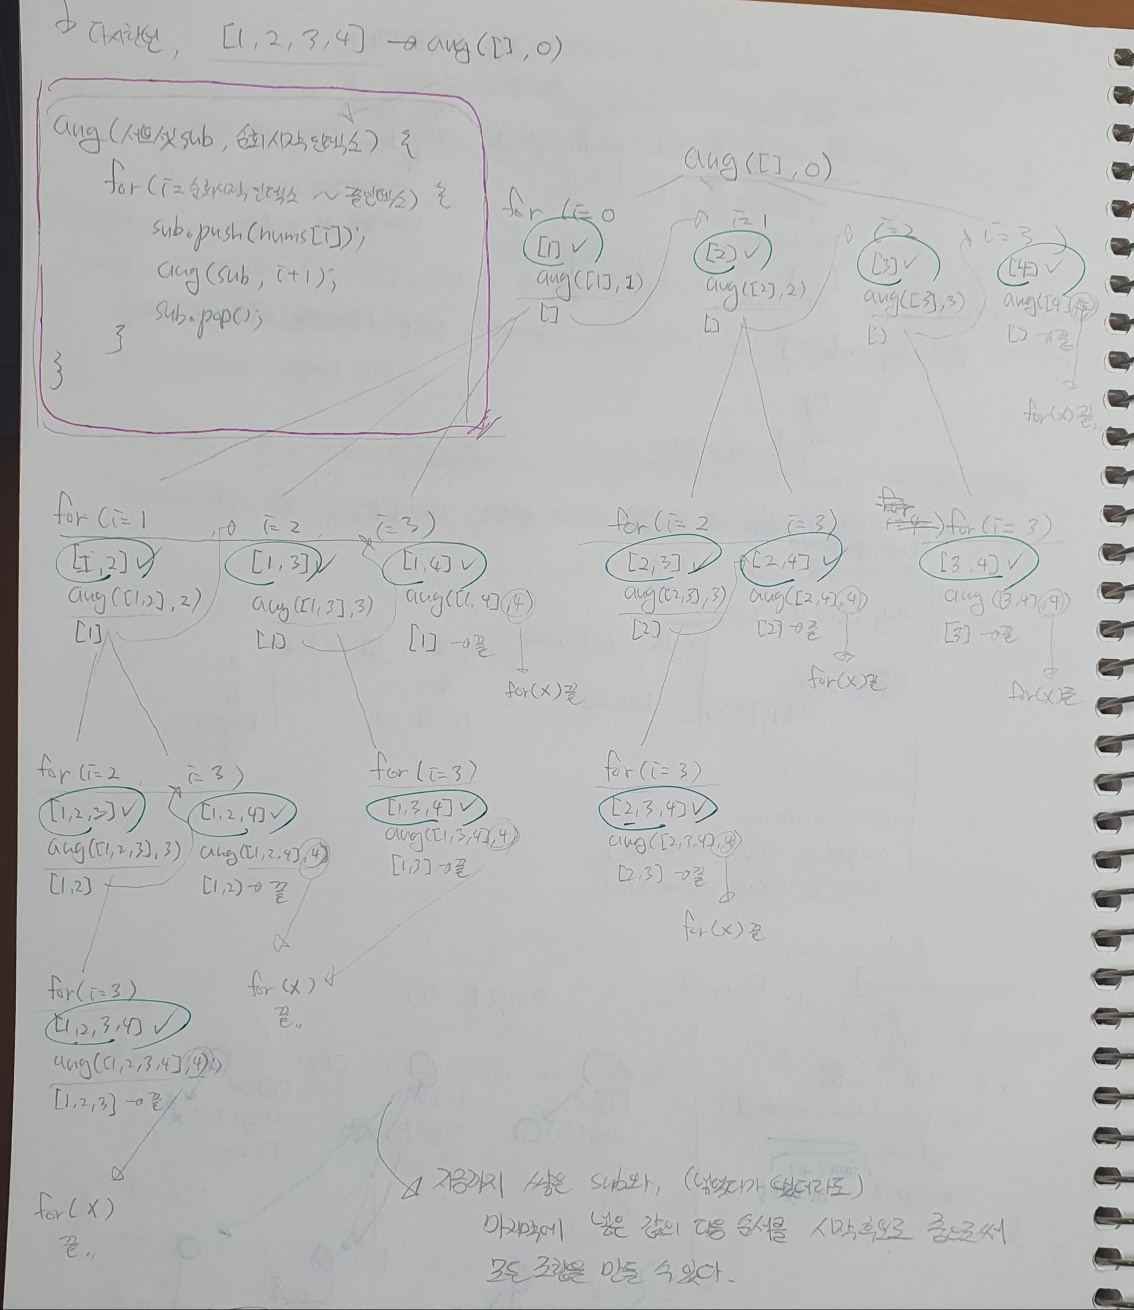 다시한번, [1,2,3,4] → aug([],0)
aug(서브셋sub, 순회시작인덱스) {
for(i=순회시작인덱스 ~ 끝인덱스) {
sub.push(nums[i]);
aug(sub, i+1);
sub.pop();
}
}
aug([],0)
for (i=0 i=1 i=2 i=3)
[1]✓ [2]✓ [3]✓ [4]✓
aug([1],1) aug([2],2) aug([3],3) aug([4],4)
[] [] [] [] →끝
for(x)끝..
for(i=1 i=2 i=3) for(i=2 i=3) for(i=3)
[1,2]✓ [1,3]✓ [1,4]✓ [2,3]✓ [2,4]✓ [3,4]✓
aug([1,2],2) aug([1,3],3) aug([1,4],4) aug([2,3],3) aug([2,4],4) aug([3,4],4)
[1] [1] [1] →끝 [2] [2] →끝 [3] →끝
for(x)끝 for(x)끝 for(x)끝
for(i=2 i=3) for(i=3) for(i=3)
[1,2,3]✓ [1,2,4]✓ [1,3,4]✓ [2,3,4]✓
aug([1,2,3],3) aug([1,2,4],4) aug([1,3,4],4) aug([2,3,4],4)
[1,2] [1,2]→끝 [1,3]→끝 [2,3]→끝
for(x)끝
for(i=3) for(x)
끝..
[1,2,3,4]✓
aug([1,2,3,4],4);
[1,2,3]→끝
for(x)
끝..
지금까지 쌓은 sub와, (넣었다가 뺐더라도)
마지막에 넣은 값의 다음 순서를 시작으로 줌으로써
모든 조합을 만들 수 있다.